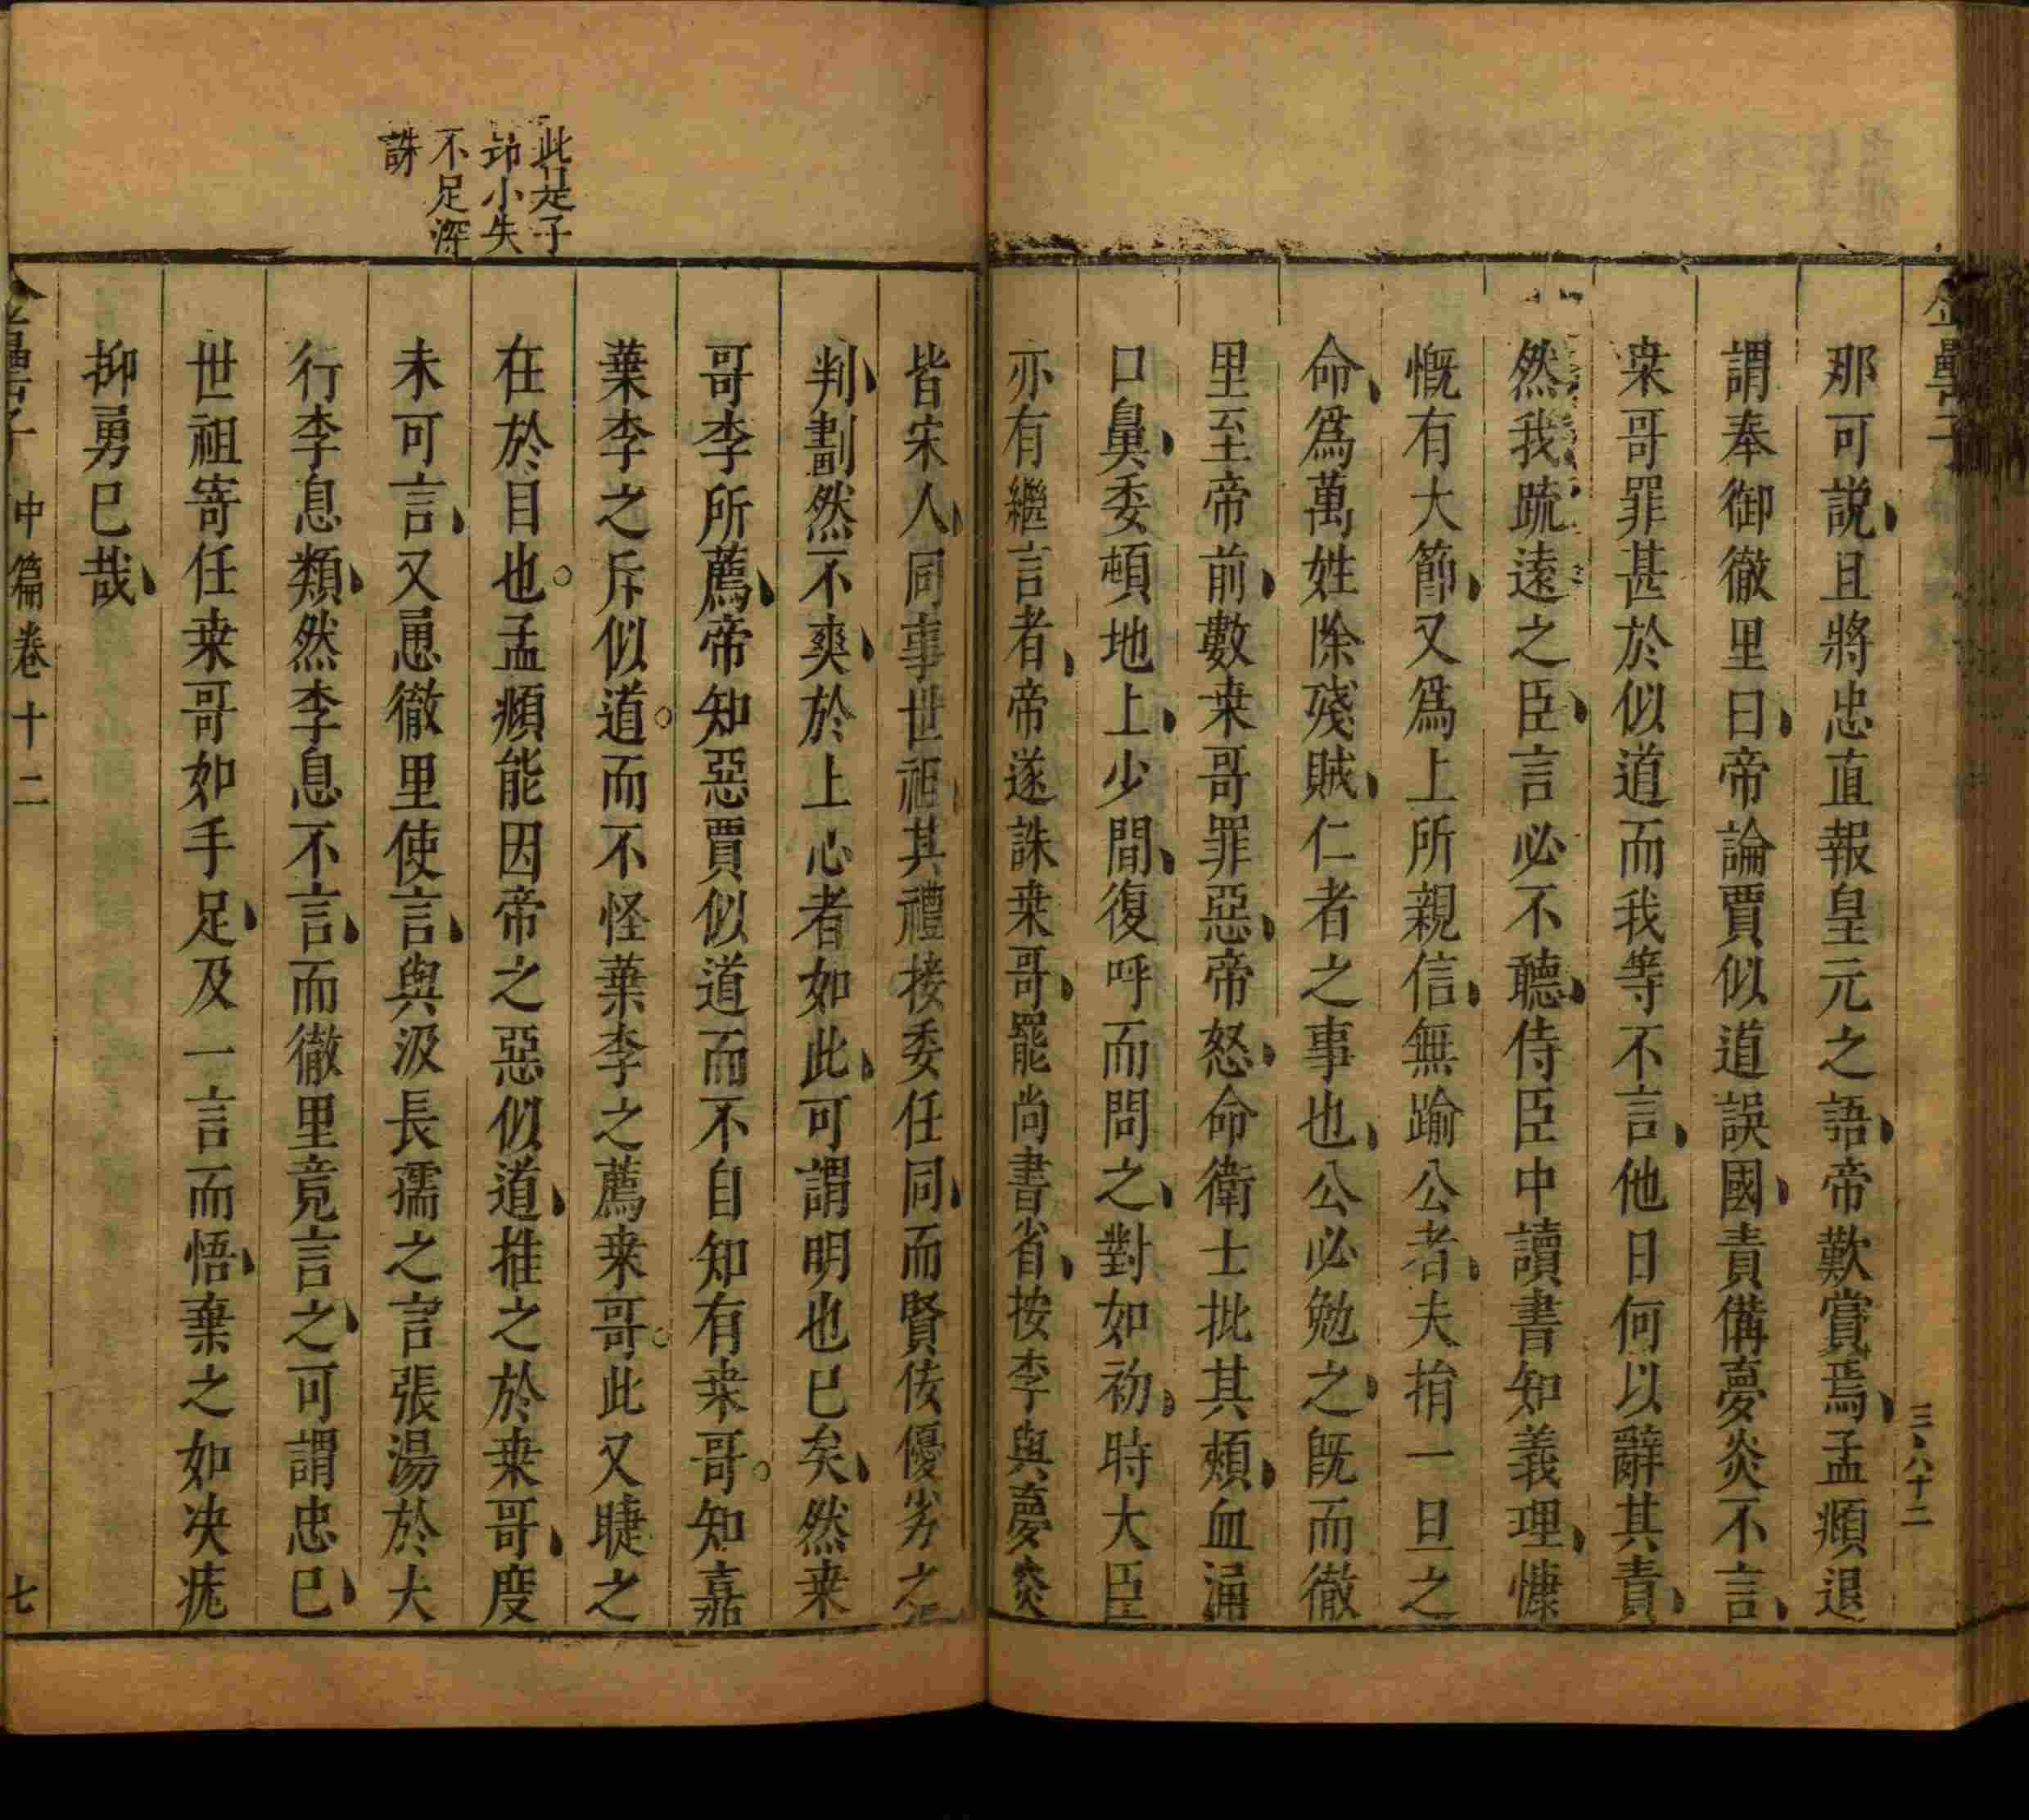 金罍子
三六十二
那可説且將忠直報皇元之語帝歎賞焉孟頫退
謂奉御徹里曰帝論賈似道誤國責備夢炎不言
桒哥罪甚於似道而我等不言他日何以辭其責
然我䟽遠之臣言必不聽侍臣中讀書知義理慷
慨有大節又爲上所親信無踰公者夫捐一旦之
命爲萬姓除殘賊仁者之事也公必勉之旣而徹
里至帝前數桒哥罪惡帝怒命衛士批其頰血涌
口鼻委頓地上少間復呼而問之對如初時大臣
亦有繼言者帝遂誅桒哥罷尚書省按李與夢炎
皆宋人同事世祖其禮接委任同而賢佞優劣之
判劃然不爽於上心者如此可謂明也已矣然桒
哥李所薦帝知惡賈似道而不自知有桒哥知嘉
葉李之斥似道而不怪葉李之薦桒哥此又睫之
在於目也孟頫能因帝之惡似道推之於桒哥度
未可言又恿徹里使言與汲長孺之言張湯於大
行李息類然李息不言而徹里竟言之可謂忠已
世祖寄任桒哥如手足及一言而悟棄之如决疣
抑勇已哉
此是子
卬小失
不足深
誅
金罍子 中篇卷十二 七